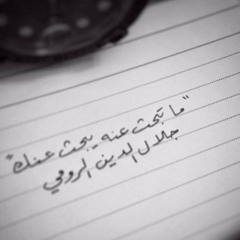 "ما تبحث عنه يبحث عنك"
جلال الدين الرومي